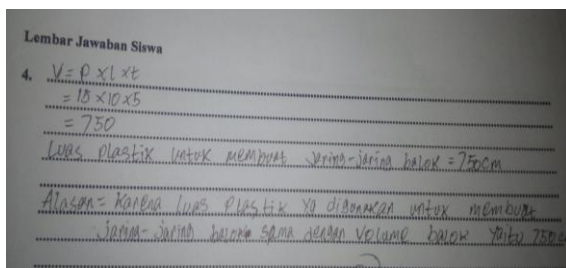 Lembar Jawaban Siswa
4. V = P x l x t
= 15 x 10 x 5
= 750
Luas plastik untuk membuat jaring-jaring balok = 750 cm
Alasan = Karena luas plastik yg digunakan untuk membuat
jaring-jaring balok sama dengan volume balok yaitu 750